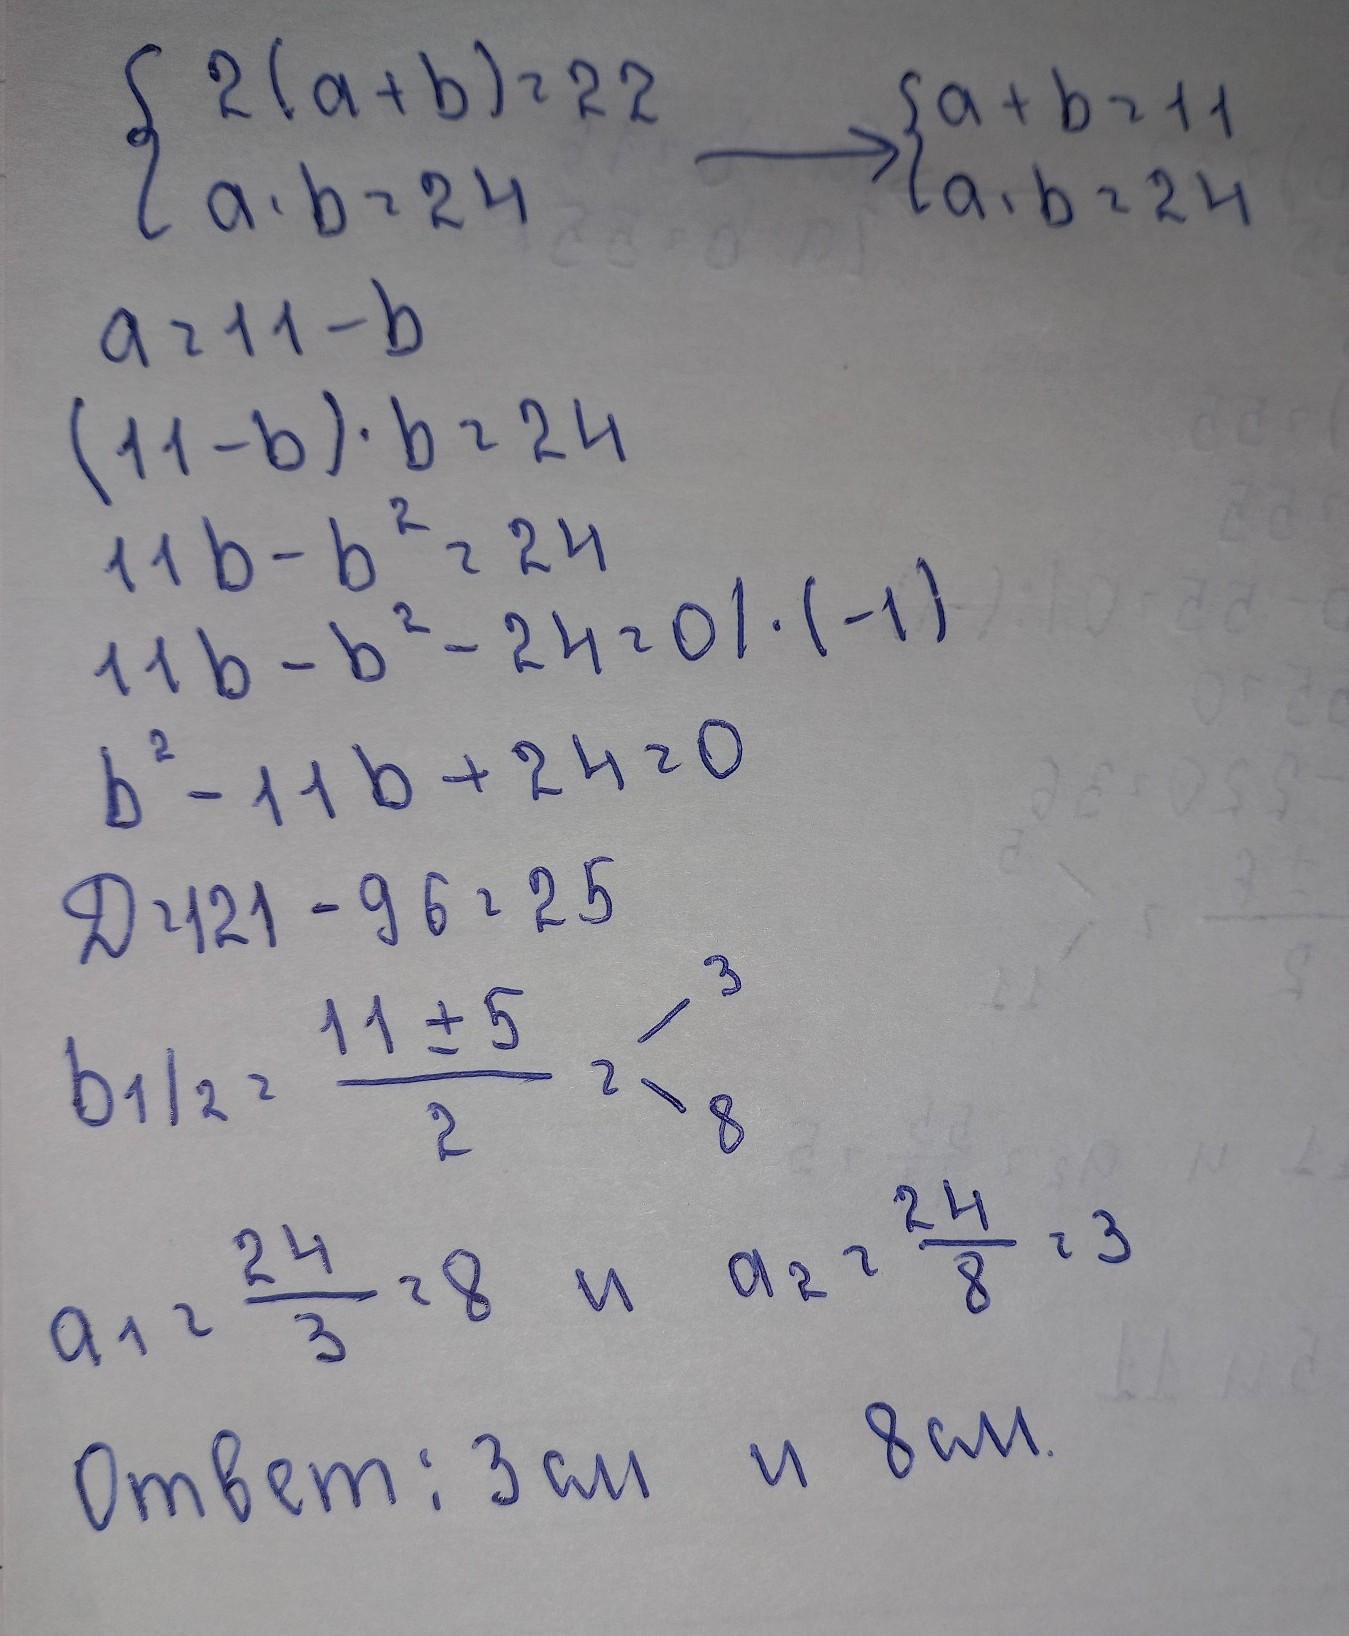 { 2(a+b)=22 → { a+b=11
a·b=24 a·b=24
a=11-b
(11-b)·b=24
11b-b²=24
11b-b²-24=0|·(-1)
b²-11b+24=0
D=121-96=25
b1/2= (11±5)/2 = 3
8
a1= 24/3 =8 и a2= 24/8 =3
Ответ: 3см и 8см.